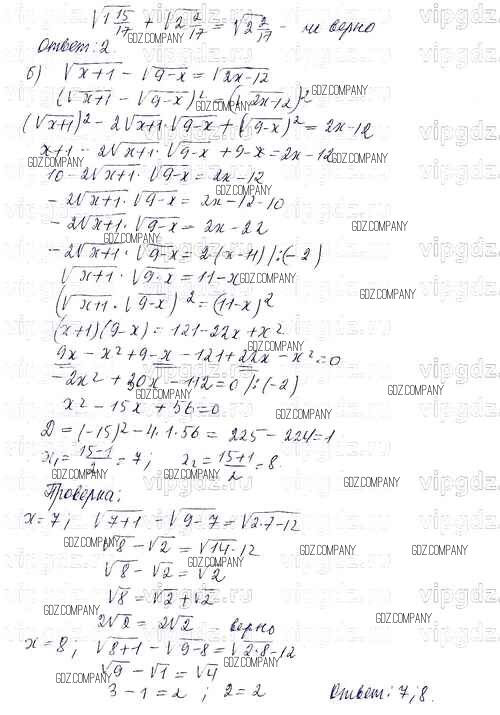 √1 15/17 + √2 2/17 = √2 2/17 - не верно
Ответ: 2.
GDZ.COMPANY
б) √x+1 - √9-x = √2x-12
(√x+1 - √9-x)² = (√2x-12)²
(√x+1)² - 2√x+1 · √9-x + (√9-x)² = 2x-12
x+1 - 2√x+1 · √9-x + 9-x = 2x-12
10 - 2√x+1 · √9-x = 2x-12
- 2√x+1 · √9-x = 2x-12-10
- 2√x+1 · √9-x = 2x-22
- 2√x+1 · √9-x = 2(x-11) /:(-2)
√x+1 · √9-x = 11-x
(√x+1 · √9-x)² = (11-x)²
(x+1)(9-x) = 121-22x+x²
9x - x² + 9 - x - 121 + 22x - x² = 0
- 2x² + 30x - 112 = 0 /:(-2)
x² - 15x + 56 = 0
D = (-15)² - 4·1·56 = 225 - 224 = 1
x₁ = 15-1/2 = 7; x₂ = 15+1/2 = 8.
Проверка:
x=7; √7+1 - √9-7 = √2·7-12
√8 - √2 = √14-12
√8 - √2 = √2
√8 = √2+√2
2√2 = 2√2 - верно
x=8; √8+1 - √9-8 = √2·8-12
√9 - √1 = √4
3-1=2 ; 2=2 Ответ: 7; 8.